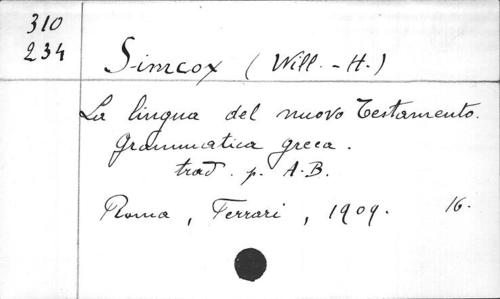 310
234
Simcox (Will. - H.)
La lingua del nuovo Testamento.
Grammatica greca.
trad. p. A.B.
Roma, Ferrari, 1909. 16.